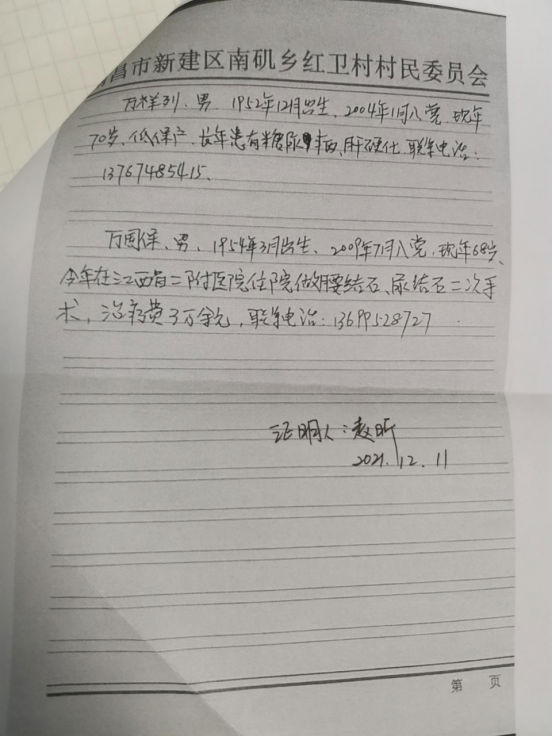 昌市新建区南矶乡红卫村村民委员会
万祥列、男、1952年12月出生、2004年1月入党、现年
70岁、低保户、长年患有糖尿病、肝硬化、联系电话:
13767485415、
万国保、男、1954年3月出生、2009年7月入党、现年68岁、
今年在江西省二附医院住院做腰结石、尿结石二次手
术,治病费3万余元,联系电话:13699528727
证明人:赵昕
2021.12.11
第 页